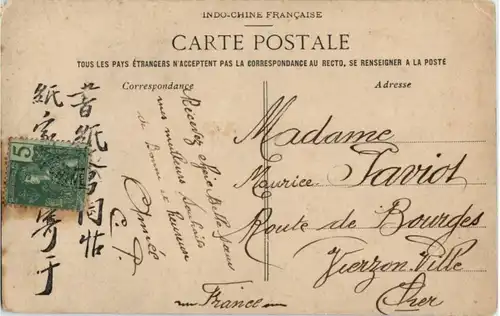 INDO-CHINE FRANÇAISE
CARTE POSTALE
TOUS LES PAYS ÉTRANGERS N'ACCEPTENT PAS LA CORRESPONDANCE AU RECTO, SE RENSEIGNER A LA POSTE
Correspondance
Adresse
昔紙
紙家
寄于
5
Recevez chère Belle sœur
mes meilleurs souhaits
de Bonne et heureuse
Année
E. P.
France
Madame
Maurice Taviot
Route de Bourges
Vierzon-Ville
Cher